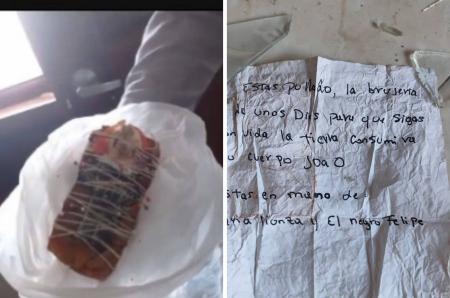 Estas pollado, la brujeria
e unos Dias para que sigas
on vida la tierra consumira
u cuerpo JoaO
stas en mano de
lionza y El negro Felipe